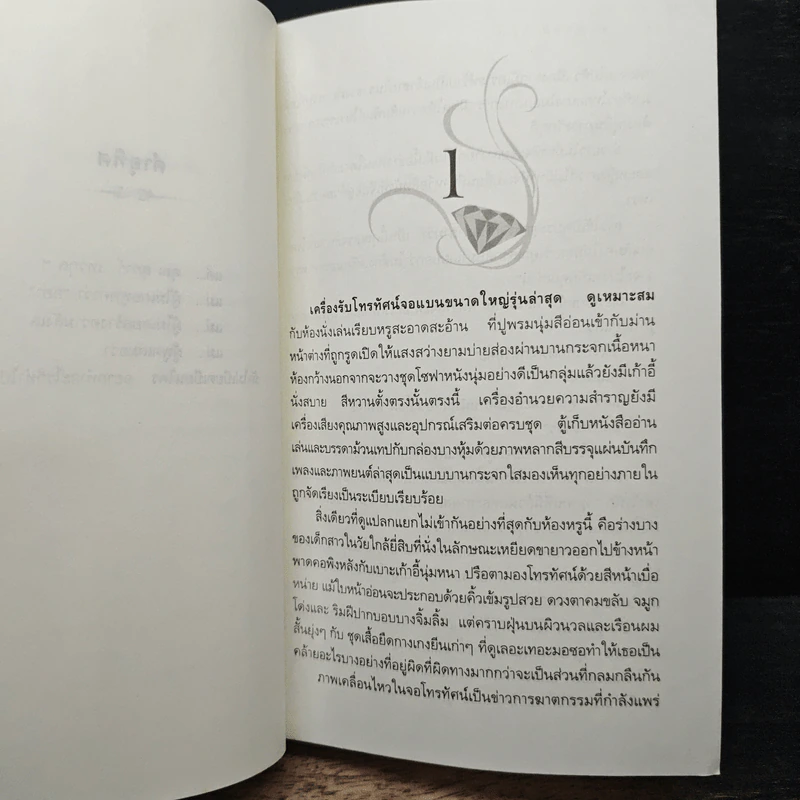 1
เครื่องรับโทรทัศน์จอแบนขนาดใหญ่รุ่นล่าสุด ดูเหมาะสม
กับห้องนั่งเล่นเรียบหรูสะอาดสะอ้าน ที่ปูพรมนุ่มสีอ่อนเข้ากับม่าน
หน้าต่างที่ถูกรูดเปิดให้แสงสว่างยามบ่ายส่องผ่านบานกระจกเนื้อหนา
ห้องกว้างนอกจากจะวางชุดโซฟาหนังนุ่มอย่างดีเป็นกลุ่มแล้วยังมีเก้าอี้
นั่งสบาย สีหวานตั้งตรงนั้นตรงนี้ เครื่องอำนวยความสำราญยังมี
เครื่องเสียงคุณภาพสูงและอุปกรณ์เสริมต่อครบชุด ตู้เก็บหนังสืออ่าน
เล่นและบรรดาม้วนเทปกับกล่องบางหุ้มด้วยภาพหลากสีบรรจุแผ่นบันทึก
เพลงและภาพยนต์ล่าสุดเป็นแบบบานกระจกใสมองเห็นทุกอย่างภายใน
ถูกจัดเรียงเป็นระเบียบเรียบร้อย
สิ่งเดียวที่ดูแปลกแยกไม่เข้ากันอย่างที่สุดกับห้องหรูนี้ คือร่างบาง
ของเด็กสาวในวัยใกล้ยี่สิบที่นั่งในลักษณะเหยียดขายาวออกไปข้างหน้า
พาดคอพิงหลังกับเบาะเก้าอี้นุ่มหนา ปรือตามองโทรทัศน์ด้วยสีหน้าเบื่อ
หน่าย แม้ใบหน้าอ่อนจะประกอบด้วยคิ้วเข้มรูปสวย ดวงตาคมขลับ จมูก
โด่งและ ริมฝีปากบอบบางจิ้มลิ้ม แต่คราบฝุ่นบนผิวนวลและเรือนผม
สั้นยุ่งๆ กับ ชุดเสื้อยืดกางเกงยีนเก่าๆ ที่ดูเลอะเทอะมอซอทำให้เธอเป็น
คล้ายอะไรบางอย่างที่อยู่ผิดที่ผิดทางมากกว่าจะเป็นส่วนที่กลมกลืนกัน
ภาพเคลื่อนไหวในจอโทรทัศน์เป็นข่าวการฆาตกรรมที่กำลังแพร่